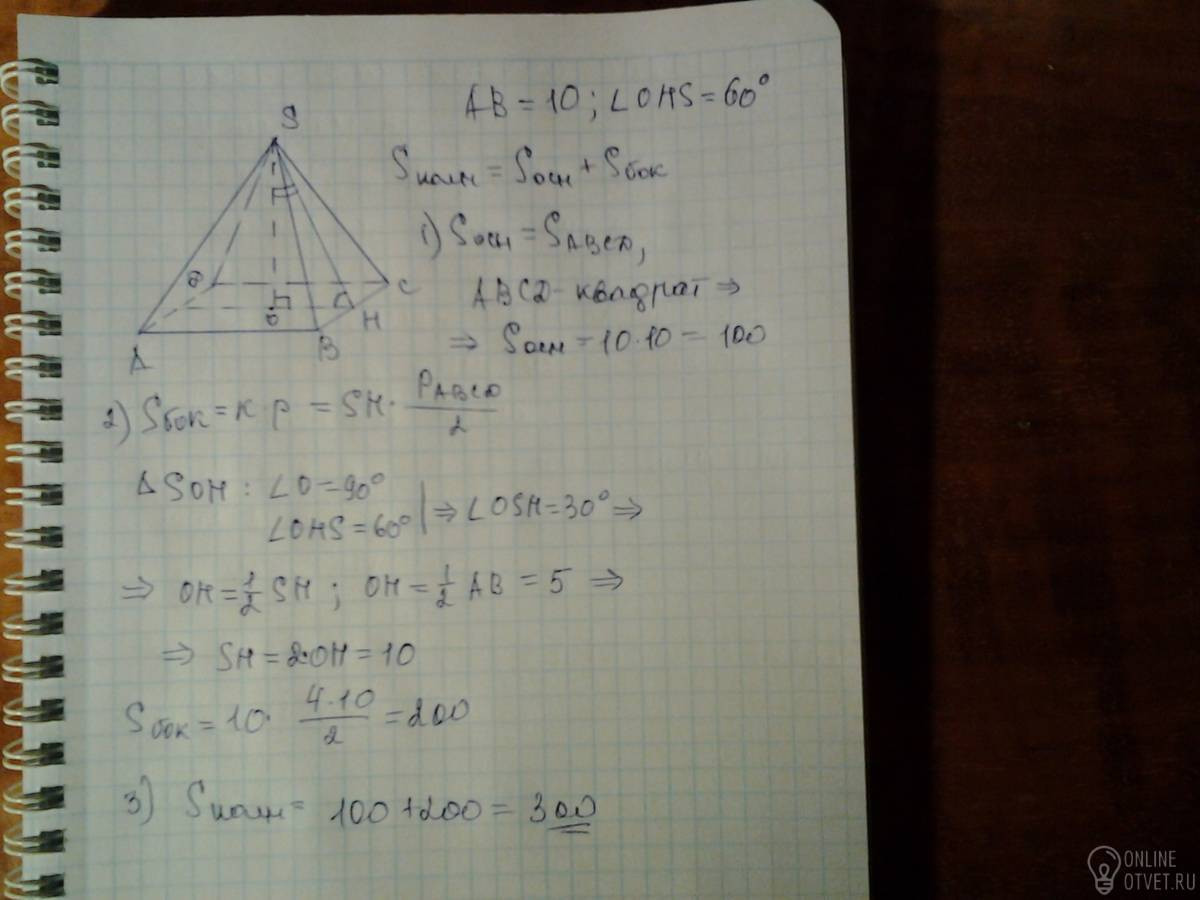 AB = 10 ; ∠OHS = 60°
S
Sполн = Sосн + Sбок
1) Sосн = SABCD,
ABCD - квадрат ⇒
⇒ Sосн = 10·10 = 100
D
C
O
H
A
B
2) Sбок = k·p = SH · PABCD/2
Δ SOH : ∠O = 90°
∠OHS = 60° | ⇒ ∠OSH = 30° ⇒
⇒ OH = 1/2 SH ; OH = 1/2 AB = 5 ⇒
⇒ SH = 2·OH = 10
Sбок = 10 · 4·10/2 = 200
3) Sполн = 100 + 200 = 300
ONLINE
OTVET.RU